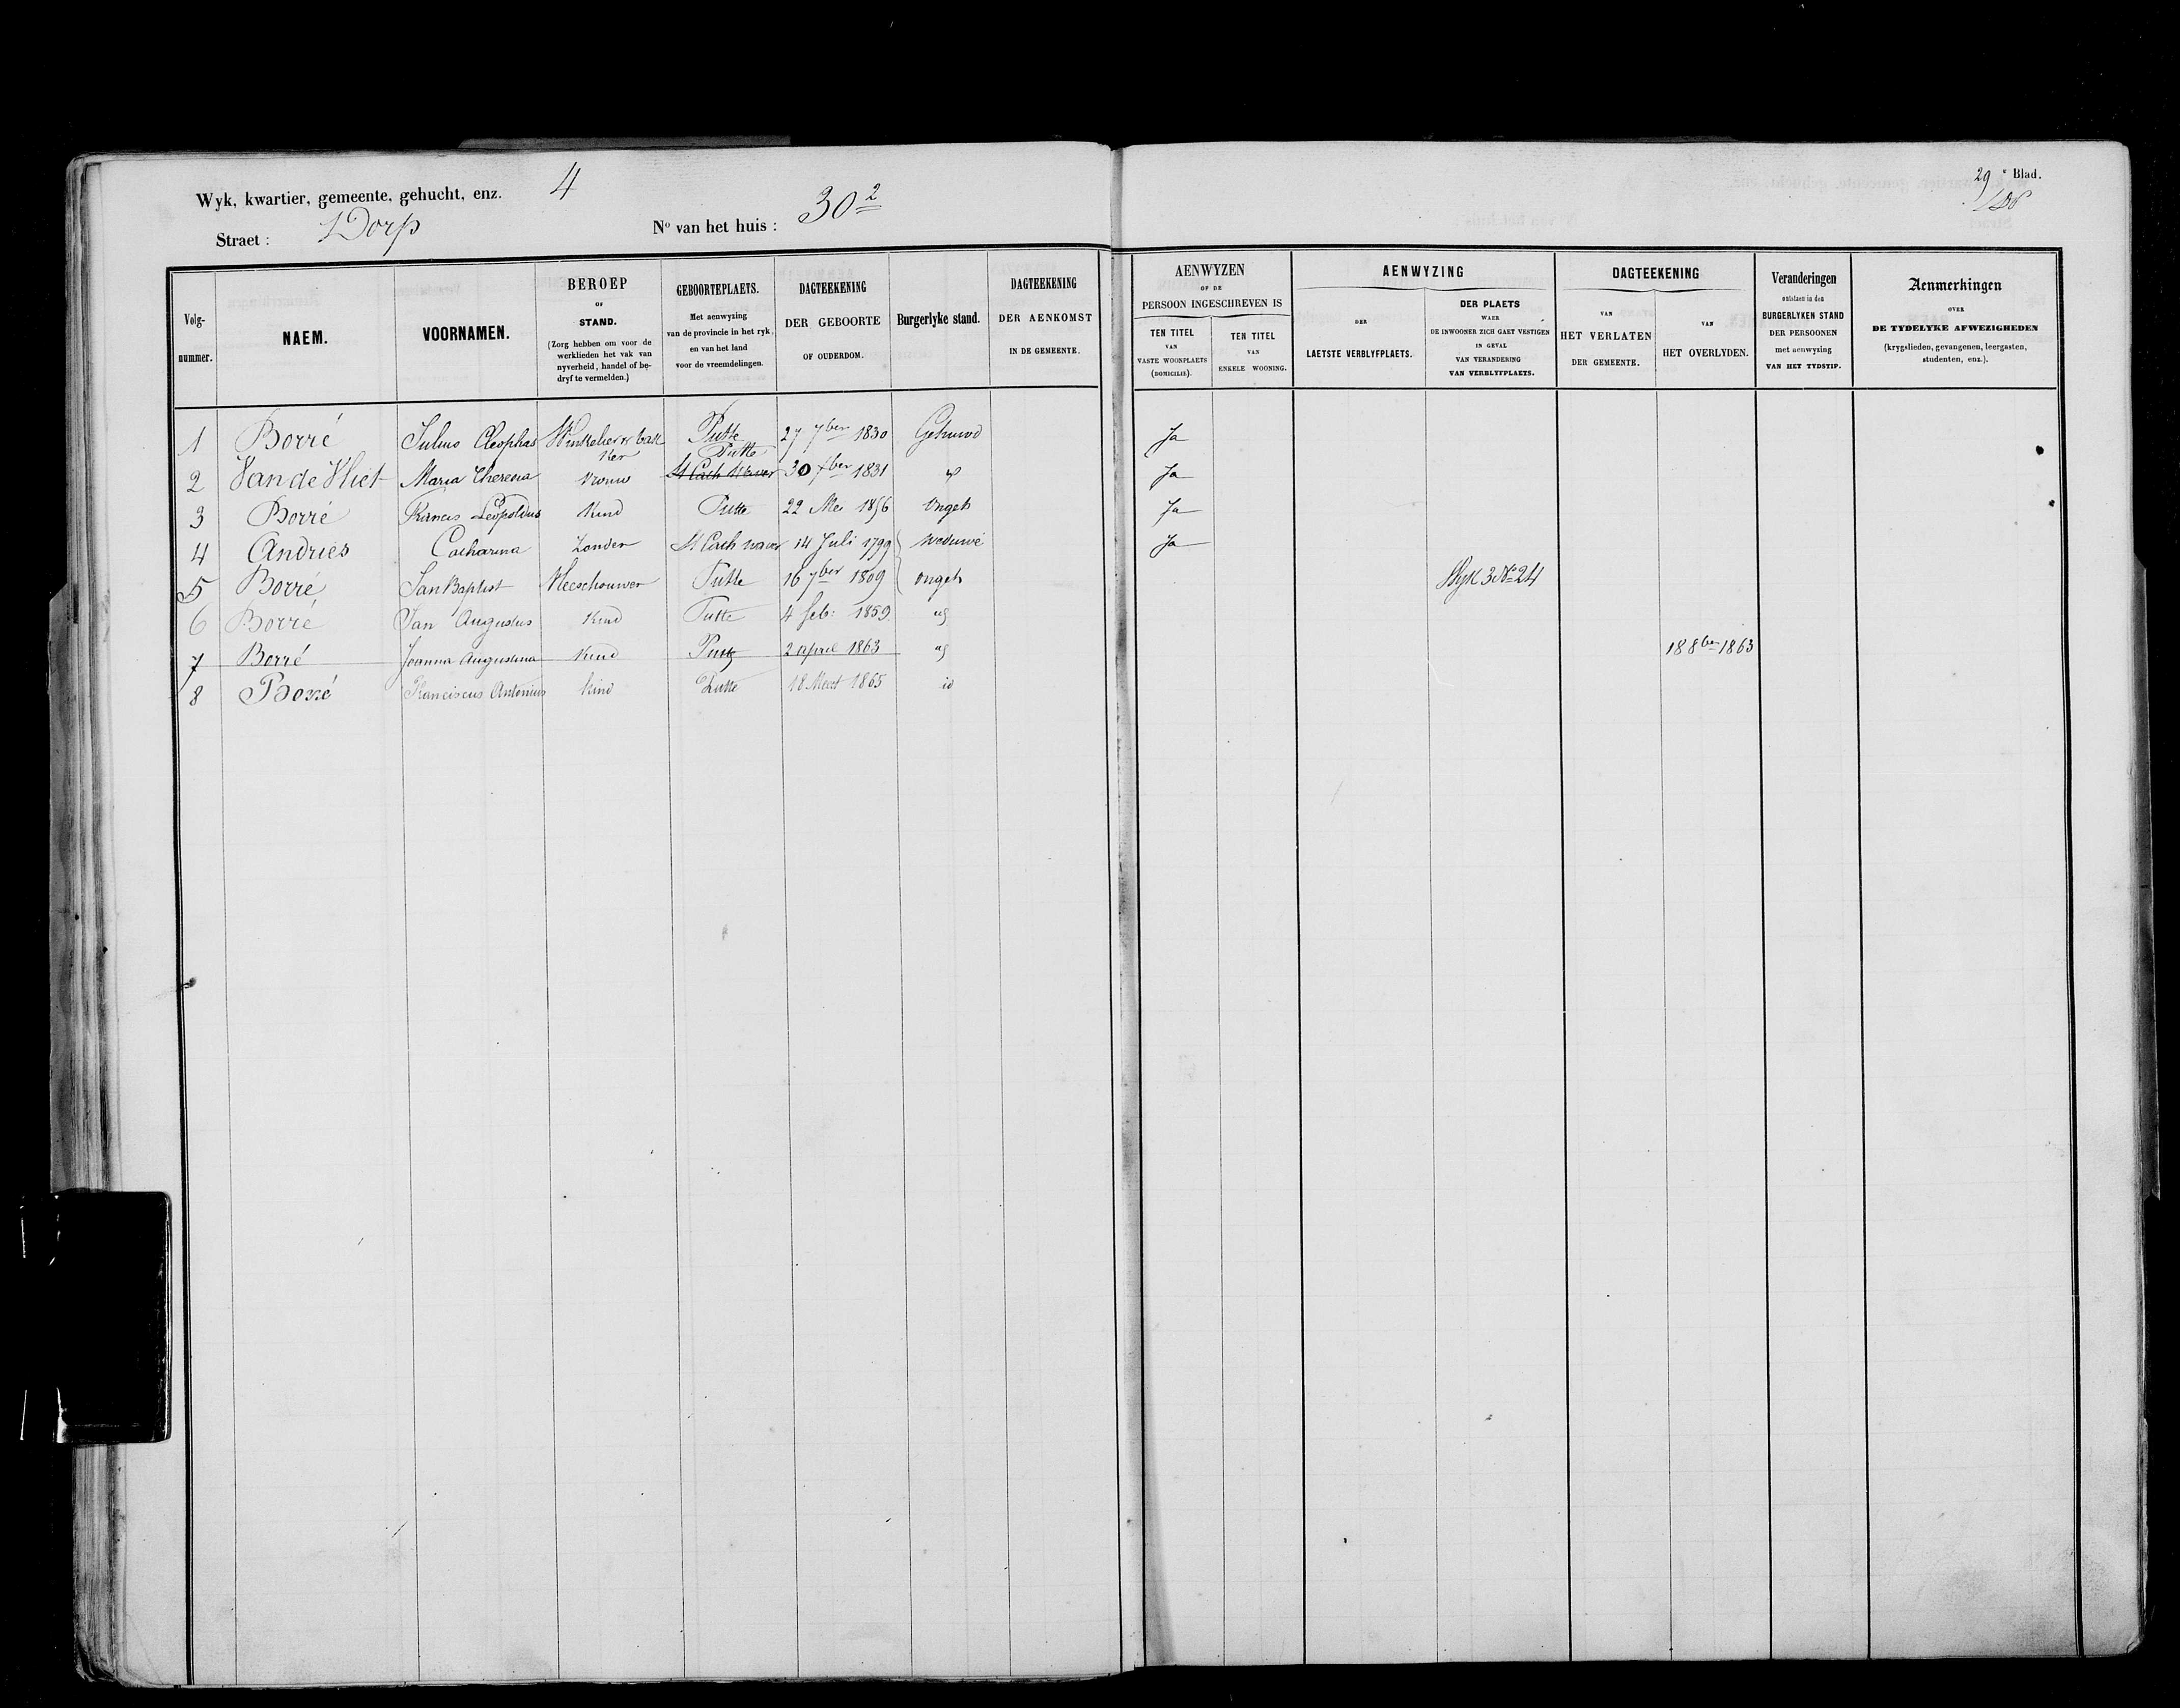 Wyk, kwartier, gemeente, gehucht, enz. 4
Straet : Dorp
No van het huis : 30 2
29 e Blad.
Volg-nummer.
NAEM.
VOORNAMEN.
BEROEP
OF
STAND.
(Zorg hebben om voor de
werklieden het vak van
nyverheid, handel of be-
dryf te vermelden.)
GEBOORTEPLAETS.
Met aenwyzing
van de provincie in het ryk,
en van het land
voor de vreemdelingen.
DAGTEEKENING
DER GEBOORTE
OF OUDERDOM.
Burgerlyke stand.
DAGTEEKENING
DER AENKOMST
IN DE GEMEENTE.
AENWYZEN
OF DE
PERSOON INGESCHREVEN IS
TEN TITEL
VAN
VASTE WOONPLAETS
(DOMICILIE).
TEN TITEL
VAN
ENKELE WOONING.
AENWYZING
DER
LAETSTE VERBLYFPLAETS.
DER PLAETS
WAER
DE INWOONER ZICH GAET VESTIGEN
IN GEVAL
VAN VERANDERING
VAN VERBLYFPLAETS.
DAGTEEKENING
VAN
HET VERLATEN
DER GEMEENTE.
VAN
HET OVERLYDEN.
Veranderingen
ontstaen in den
BURGERLYKEN STAND
DER PERSOONEN
met aenwyzing
VAN HET TYDSTIP.
Aenmerkingen
OVER
DE TYDELYKE AFWEZIGHEDEN
(krygslieden, gevangenen, leergasten,
studenten, enz.).
1 Borré Julius Cleophas Winkelier & bak ker Putte 27 7ber 1830 Gehuwd Ja
2 Van de Vliet Maria Theresia Vrouw Putte St Cath Waver 30 7ber 1831 Ja
3 Borré Francis Leopoldus Kind Putte 22 Mei 1856 Ongeh Ja
4 Andries Catharina Zonder St Cath Waver 14 Juli 1799 Weduwe Ja
5 Borré Jan Baptist Vleeschouwer Putte 16 7ber 1809 Ongeh Wyk 3 No 24
6 Borré Jan Augustus Kind Putte 4 feb: 1859
7 Borré Joanna Augustina Kind Putte 2 april 1863 18 8ber 1863
8 Borré Franciscus Antonius Kind Putte 18 Meert 1865 id